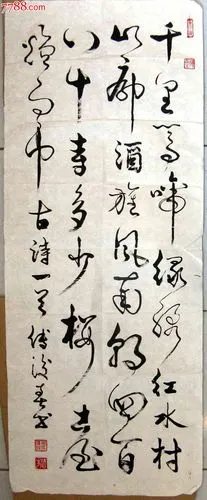 7788.com
千里莺啼绿映红水村
山郭酒旗风南朝四百
八十寺多少楼台
烟雨中 古诗一首 傅春书